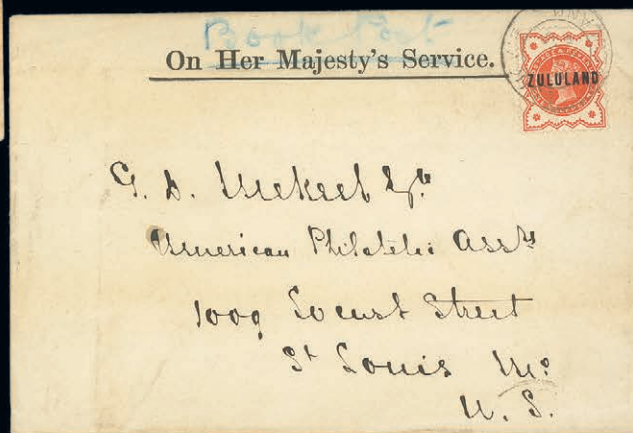 Book Post
On Her Majesty's Service.
ZULULAND
G. D. Mekeel Esq.
American Philatelic Assn
1009 Locust Street
St Louis Mo
U. S.